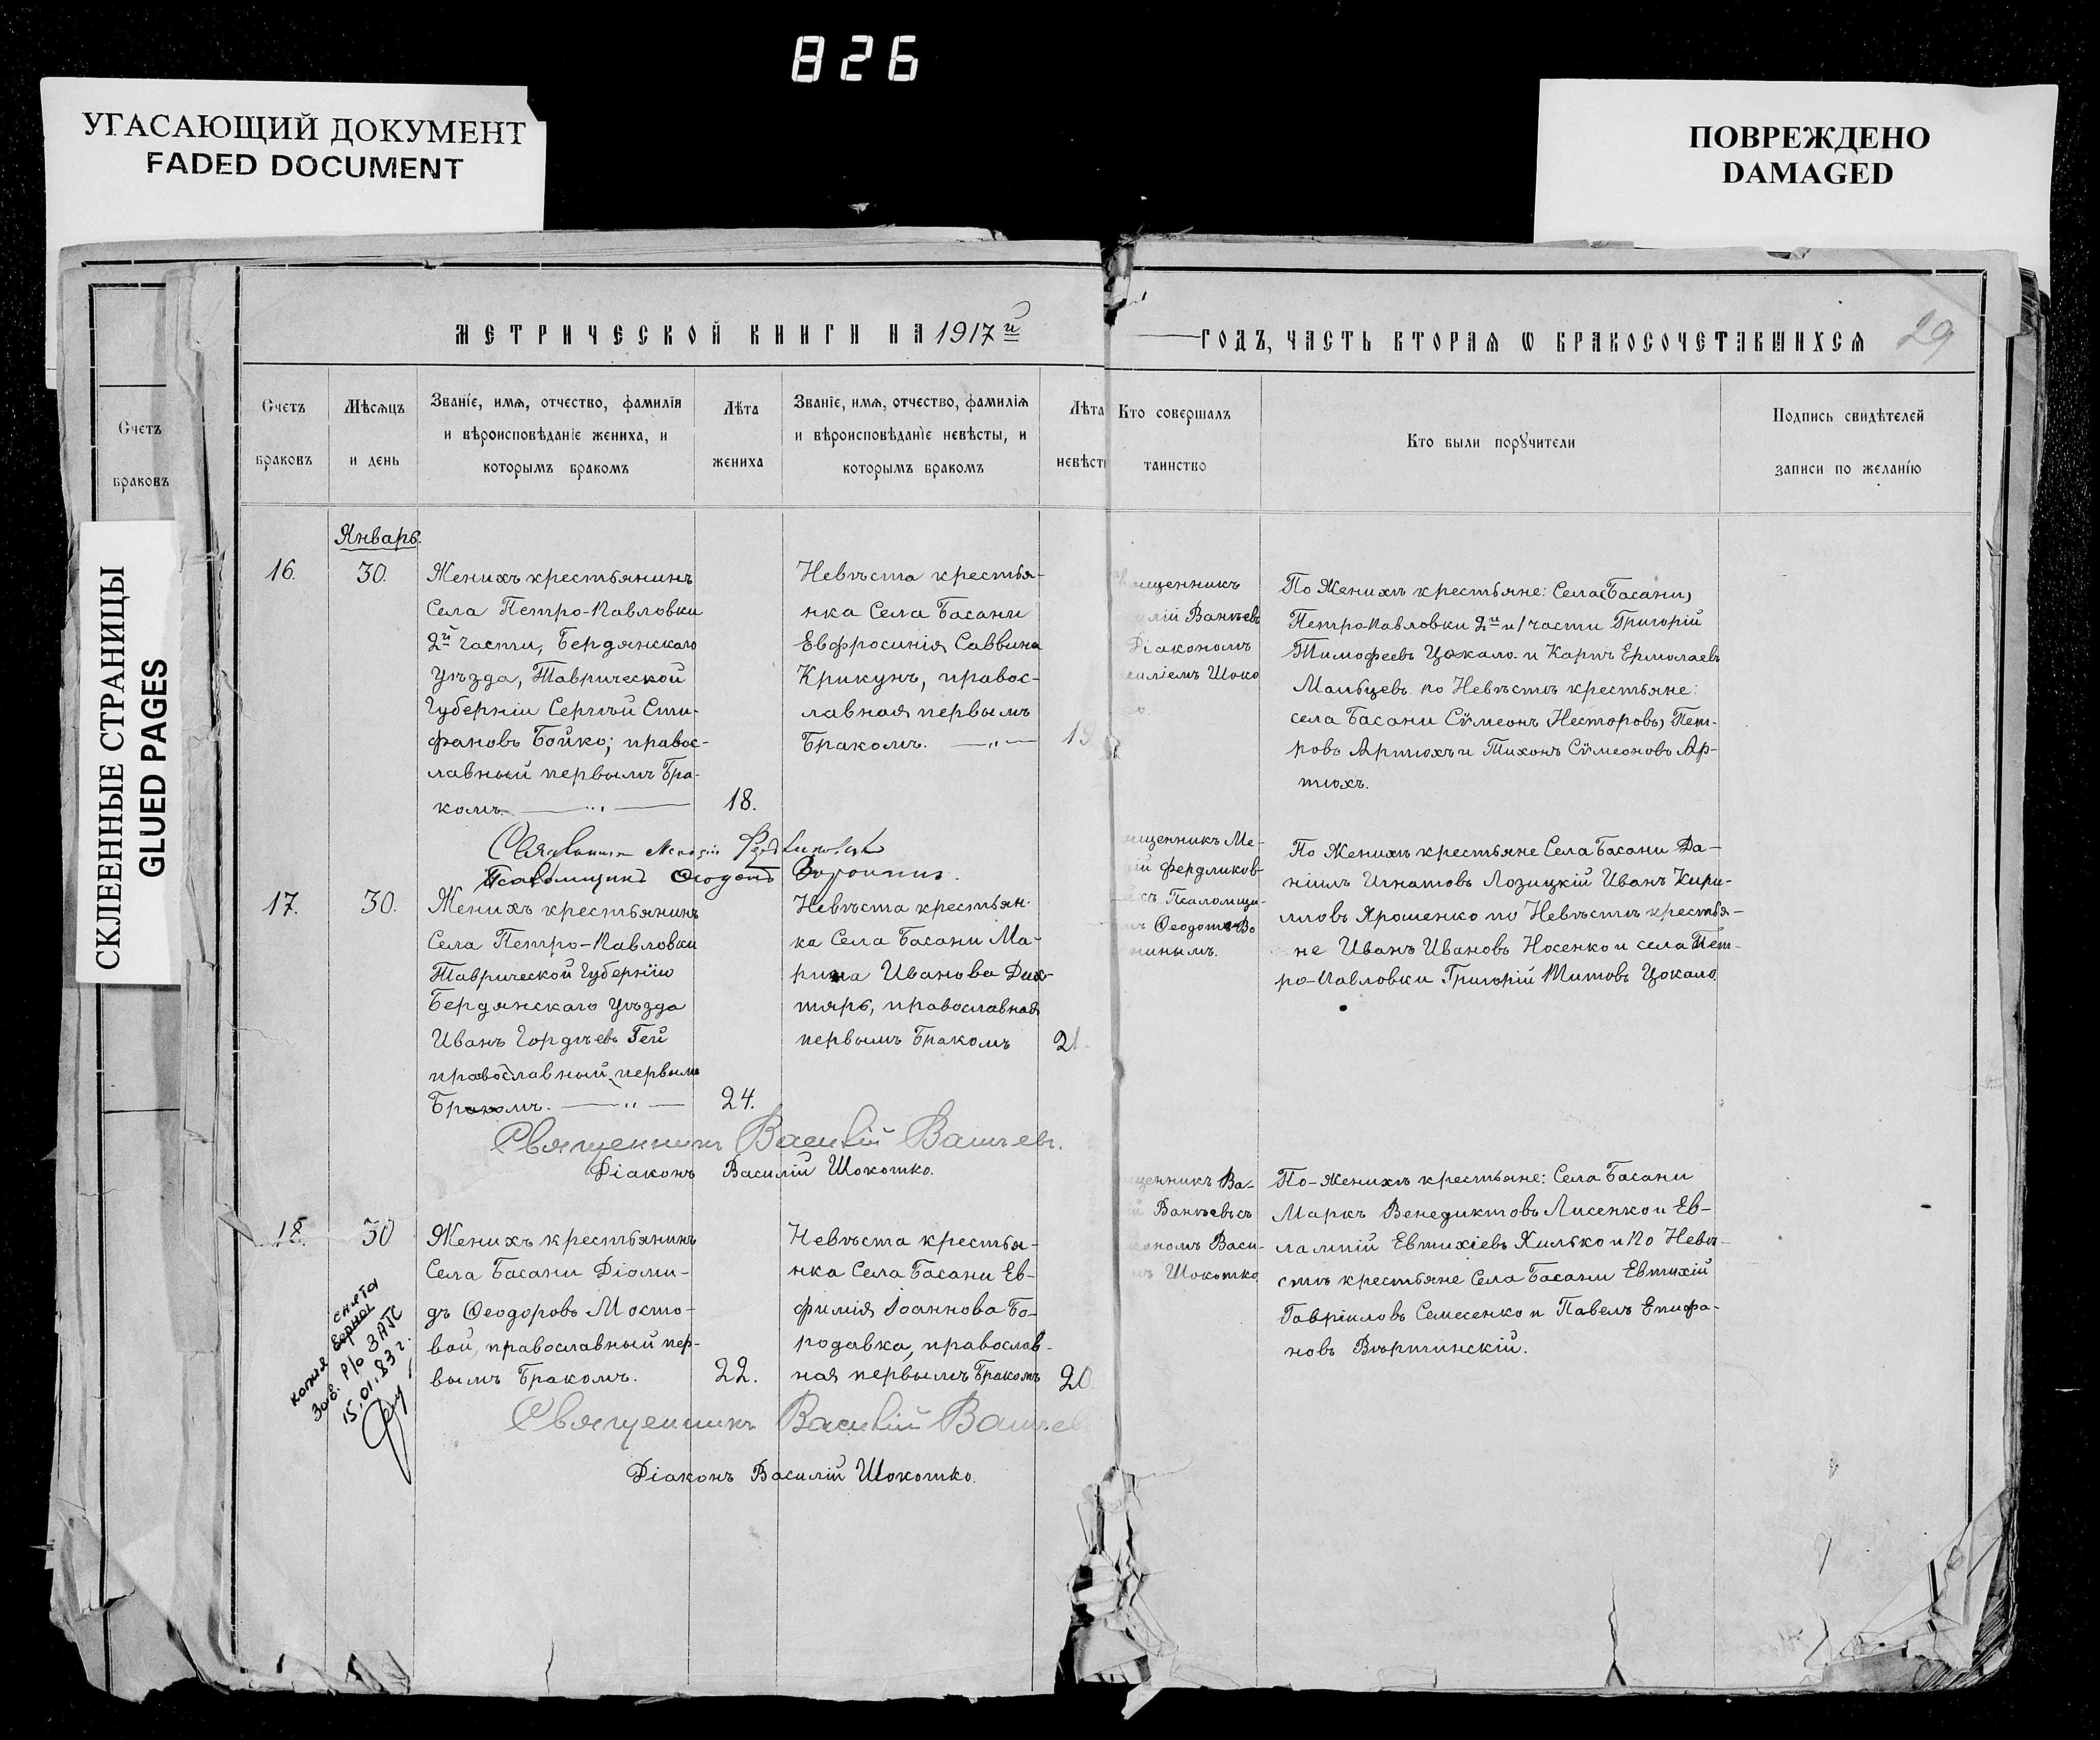 826
УГАСАЮЩИЙ ДОКУМЕНТ
FADED DOCUMENT
ПОВРЕЖДЕНО
DAMAGED
СКЛЕЕННЫЕ СТРАНИЦЫ
GLUED PAGES
Счетъ
браковъ
МЕТРИЧЕСКОЙ КНИГИ НА 1917й
ГОДЪ, ЧАСТЬ ВТОРАѦ Ѡ БРАКОСОЧЕТАВШИХСѦ
29
Счетъ
браковъ
Мѣсѧцъ
и день
Званіе, имѧ, отчество, фамилія
и вѣроисповѣданіе жениха, и
которымъ бракомъ
Лѣта
жениха
Званіе, имѧ, отчество, фамилія
и вѣроисповѣданіе невѣсты, и
которымъ бракомъ
Лѣта
невѣсты
Кто совершалъ
таинство
Кто были порꙋчители
Подпись свидѣтелей
записи по желанію
Январь.
16.
30.
Женихъ крестьянинъ
Села Петро-Павловки
2й части, Бердянскаго
Уѣзда, Таврической
Губерніи Сергѣй Сти-
фановъ Бойко; правос-
лавный первымъ Бра-
комъ.
18.
Невѣста крестья-
нка Села Басани
Евфросинія Саввина
Крикунъ, правос-
лавная первымъ
Бракомъ.
ященникъ
лій Ванѣевъ
Діакономъ
силіемъ Шоко
По Женихѣ крестьяне: Села (Басани)
Петро-Павловки 2й и 1 части Григорій
Тимофеевъ Цокало и Карпъ Ермолаевъ
Мальцевъ по Невѣстѣ крестьяне:
села Басани Сѵмеонъ Несторовъ, Пет-
ровъ Артюхъ и Тихонъ Сѵмеоновъ Ар-
тюхъ.
Псаломщикъ Ѳеодотъ Воронинъ.
17.
30.
Женихъ крестьянинъ
Села Петро-Павловки
Таврической Губерніи
Бердянскаго Уѣзда
Иванъ Гордѣевъ Гей
православный, первымъ
Бракомъ.
24.
Невѣста крестьян-
ка Села Басани Ма-
рина Иванова Дих-
тярь, православная
первымъ Бракомъ
21.
щенникъ Ме-
ій Фердликов-
съ Псаломщи-
Ѳеодотъ Во
нинымъ.
По Женихѣ крестьяне Села Басани Да-
ніилъ Игнатовъ Лозицкій Иванъ Кири-
лловъ Ярошенко по Невѣстѣ крестья-
не Иванъ Ивановъ Носенко и села Пет-
ро-Павловки Григорій Титовъ Цокало
Священникъ Василій Ванѣевъ.
Діаконъ Василій Шокотко.
18.
30
Женихъ крестьянинъ
Села Басани Діоми-
дъ Ѳеодоровъ Мосто-
вой, православный пер-
вымъ Бракомъ.
22.
Невѣста крестья-
нка Села Басани Ев-
фимія Іоаннова Бо-
родавка, православ-
ная первымъ Бракомъ
20.
щенникъ Ва-
й Ванѣевъ съ
кономъ Васи-
мъ Шокотко
По-Женихѣ крестьяне: Села Басани
Маркъ Венедиктовъ Лисенко и Ев-
лампій Евтихіевъ Хилько и По Невѣ-
стѣ крестьяне Села Басани Евтихій
Гавріиловъ Семесенко и Павелъ Епифа-
новъ Вѣртинскій.
копия верна снята
Зав. р/о ЗАГС
15.01.83 г.
Священникъ Василій Ванѣев
Діаконъ Василій Шокотко.